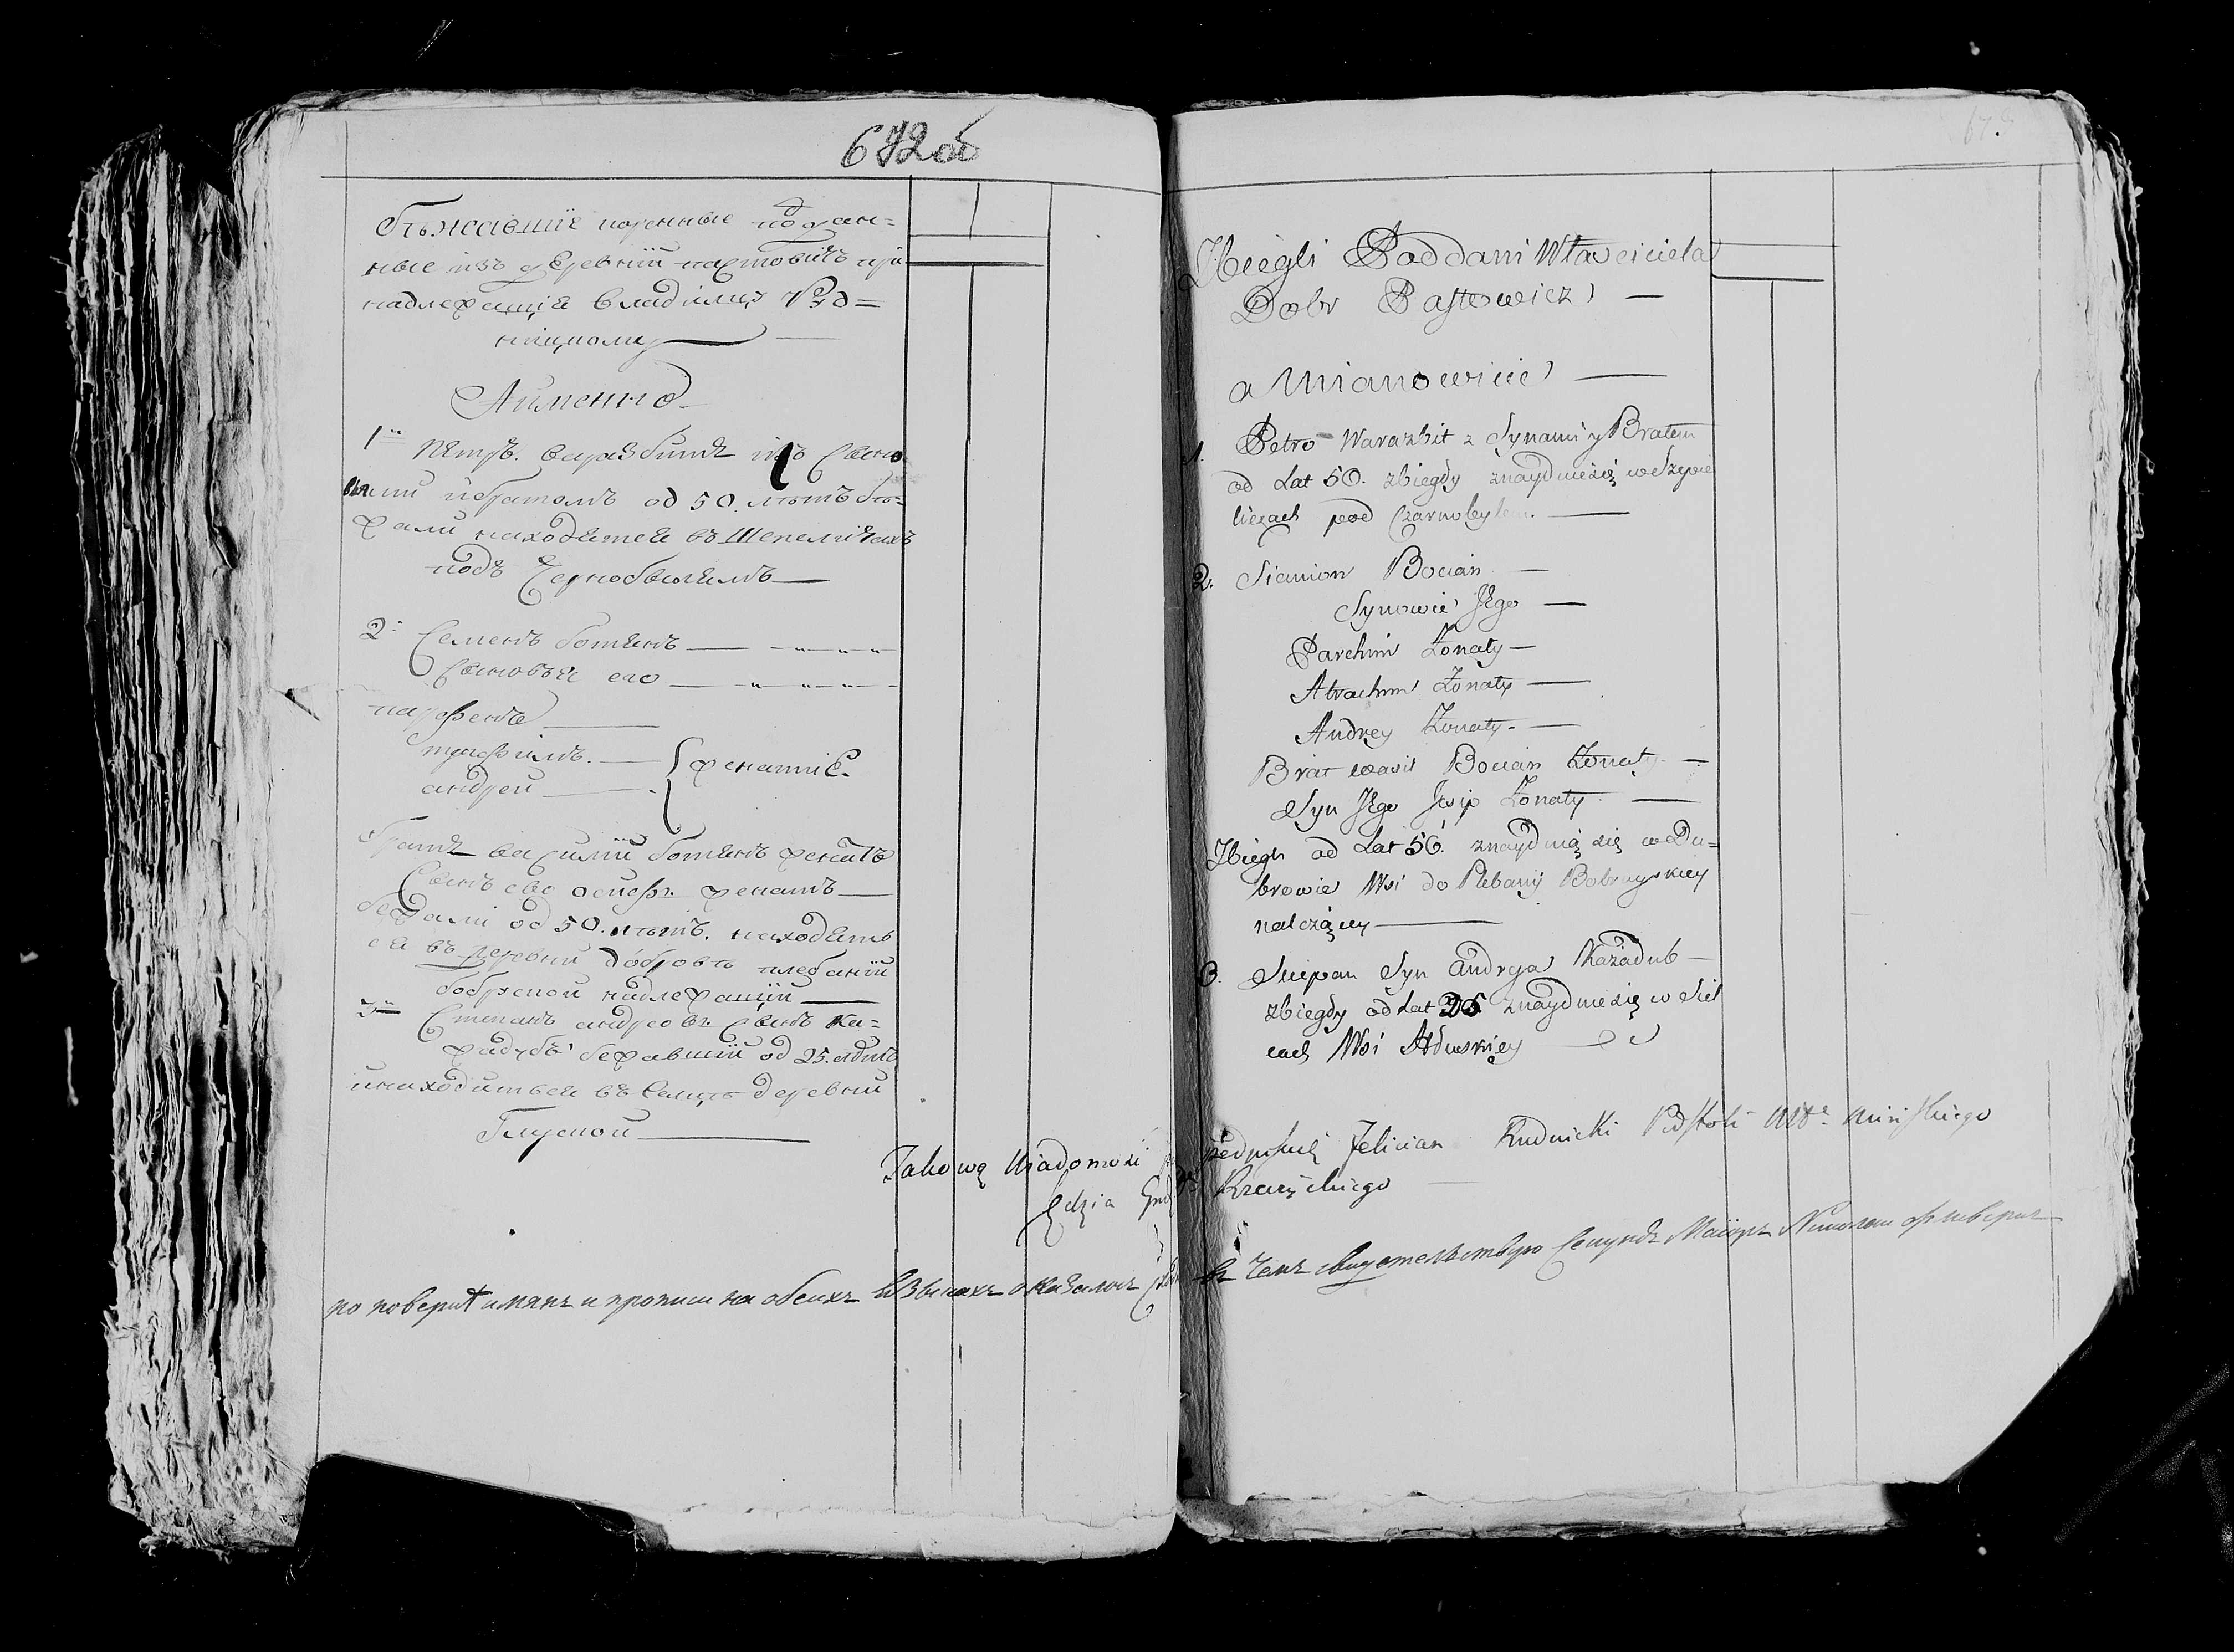 672об
Бѣжавшіе коренные поддан=
ные изъ деревнии пастовичъ при
надлежащія владѣлцу Руд=
ницкому
Аименно
1 Петръ. Варазбитъ изъ сыно
вями ибратомъ од 50. лѣтъ бѣ=
жали находятся въ Шепеличахъ
подъ Чернобылемъ
2 Семенъ ботянъ
Сыновья его
парфенъ
трофимъ.
андрей
женатие.
братъ василий ботянъ женатъ
Сынъ его осифъ женатъ
бежали од 50. лѣтъ. находять
ся въ деревни дубровѣ плебаніи
бобруской надлежащіи
3 Степанъ андреовъ сынъ ка=
жадубъ бежавший од 25. лѣтъ
инаходиться въ Селцѣ деревнии
Глуской
673
Zbiegli Poddani Własciciela
Dobr Pastowicz
a Mianowicie
1. Petro Warazbit z Synami y Bratem
od Lat 50. zbiegdy znayduie się w Szepie
liczach pod Czarnobylem.
2. Siemion Bocian
Synowie Jego
Parchim Żonaty
Atrachim Żonaty
Andrey Żonaty
Brat Wasil Bocian Żonaty
Syn Jego Josip Żonaty
Zbiegli od Lat 50. znayduią się w Du=
browie Wsi do Plebanij Bobruyskiey
należącey
3. Sciepan Syn Andreja Każadub
zbiegdy od Lat 25 znayduie się w Siel
cach Wsi Hłuskiey
Takową Wiadomosc podpisuię Felician Rudnicki Podstoli Wdz. Minskiego
Sędzia Grodz. Rzeczyckiego
по поверки имянъ и прописи на обеихъ языкахъ оказалось сходно въ чемъ свидетельствую Секундъ Маіоръ Николай